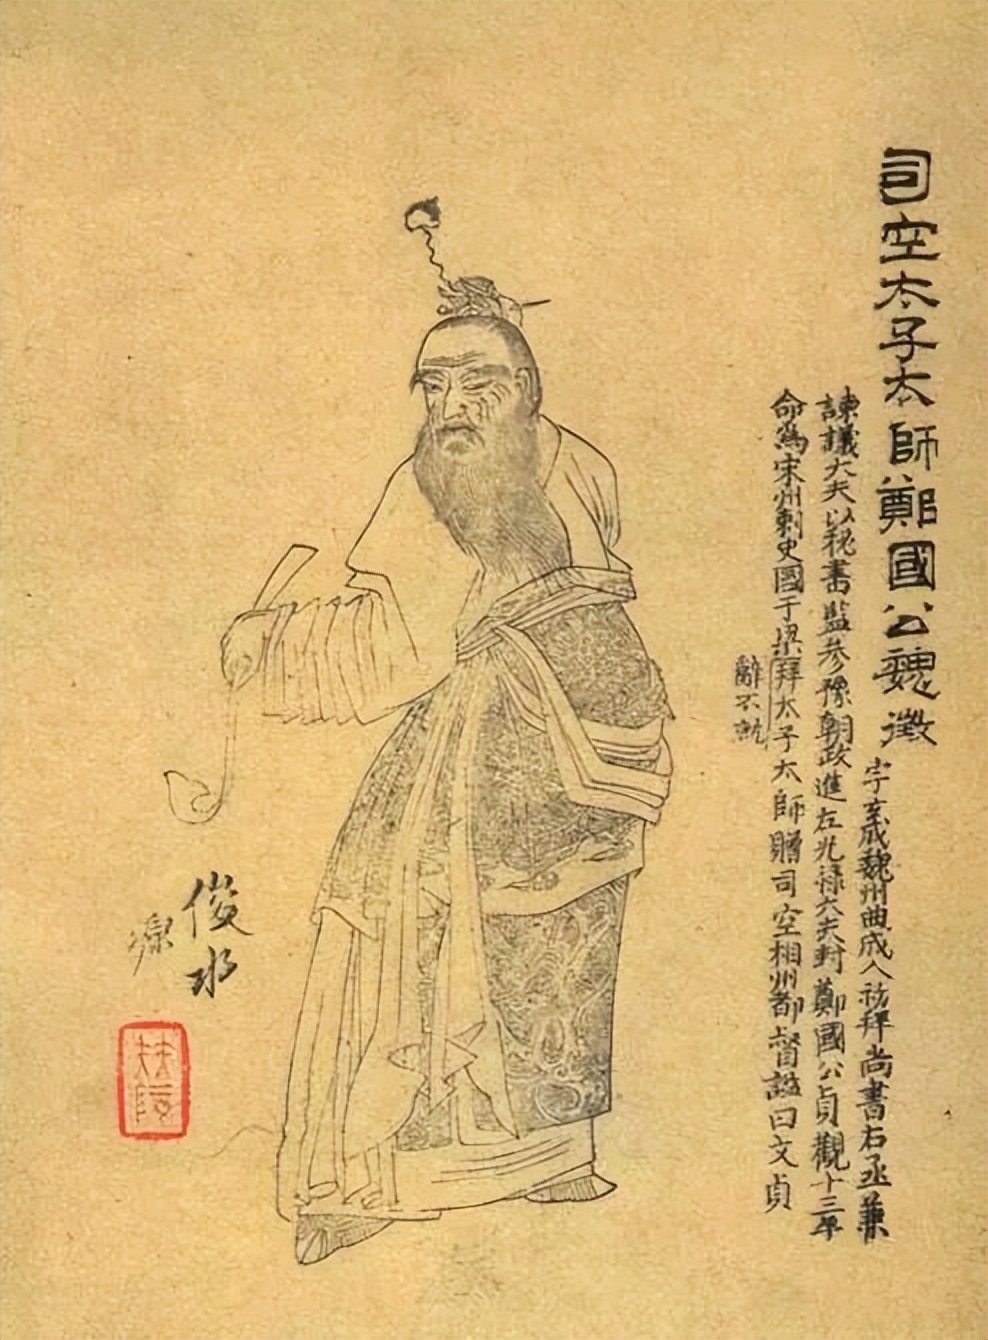 司空太子太師鄭國公魏徵
字玄成魏州曲成人初拜尚書右丞兼
諫議大夫以秘書監參豫朝政進左光祿大夫封鄭國公貞觀十三年
命爲宋州刺史國于梁拜太子太師贈司空相州都督諡曰文貞
辭不就
俊水